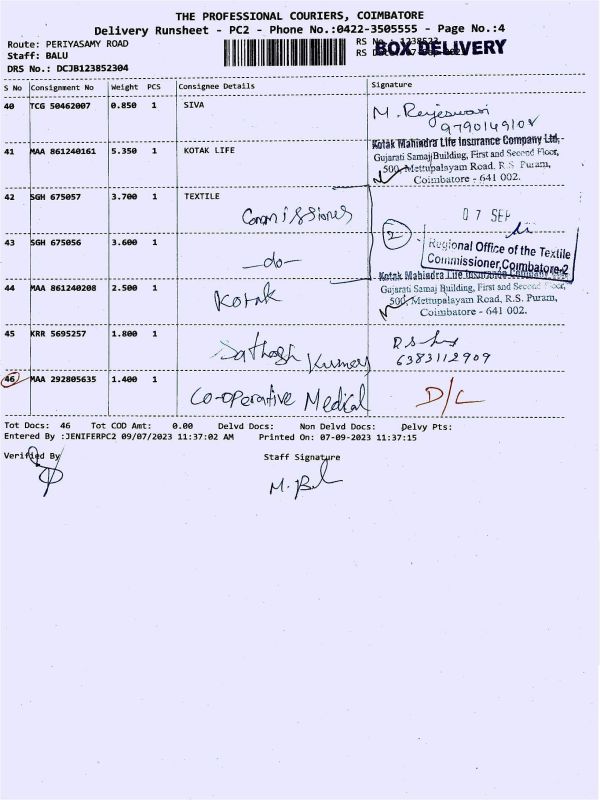 THE PROFESSIONAL COURIERS, COIMBATORE
Delivery Runsheet - PC2 - Phone No.:0422-3505555 - Page No.:4
Route: PERIYASAMY ROAD
Staff: BALU
DRS No.: DCJB123852304
RS No.: 1238523
BOX DELIVERY
S No Consignment No Weight PCS Consignee Details Signature
40 TCG 50462007 0.850 1 SIVA
M. Rajeswari
9790149108
41 MAA 861240161 5.350 1 KOTAK LIFE
Kotak Mahindra Life Insurance Company Ltd,
Gujarati Samaj Building, First and Second Floor,
500, Mettupalayam Road, R.S. Puram,
Coimbatore - 641 002.
42 SGH 675057 3.700 1 TEXTILE
Commissioner
07 SEP
43 SGH 675056 3.600 1
-do-
2
Regional Office of the Textile
Commissioner, Coimbatore-2
44 MAA 861240208 2.500 1
Kotak
Kotak Mahindra Life Insurance Company Ltd,
Gujarati Samaj Building, First and Second Floor,
500, Mettupalayam Road, R.S. Puram,
Coimbatore - 641 002.
45 KRR 5695257 1.800 1
Sathosh Kumar
6383112909
46 MAA 292805635 1.400 1
Co-operative Medical
D/L
Tot Docs: 46 Tot COD Amt: 0.00 Delvd Docs: Non Delvd Docs: Delvy Pts:
Entered By :JENIFERPC2 09/07/2023 11:37:02 AM Printed On: 07-09-2023 11:37:15
Verified By Staff Signature